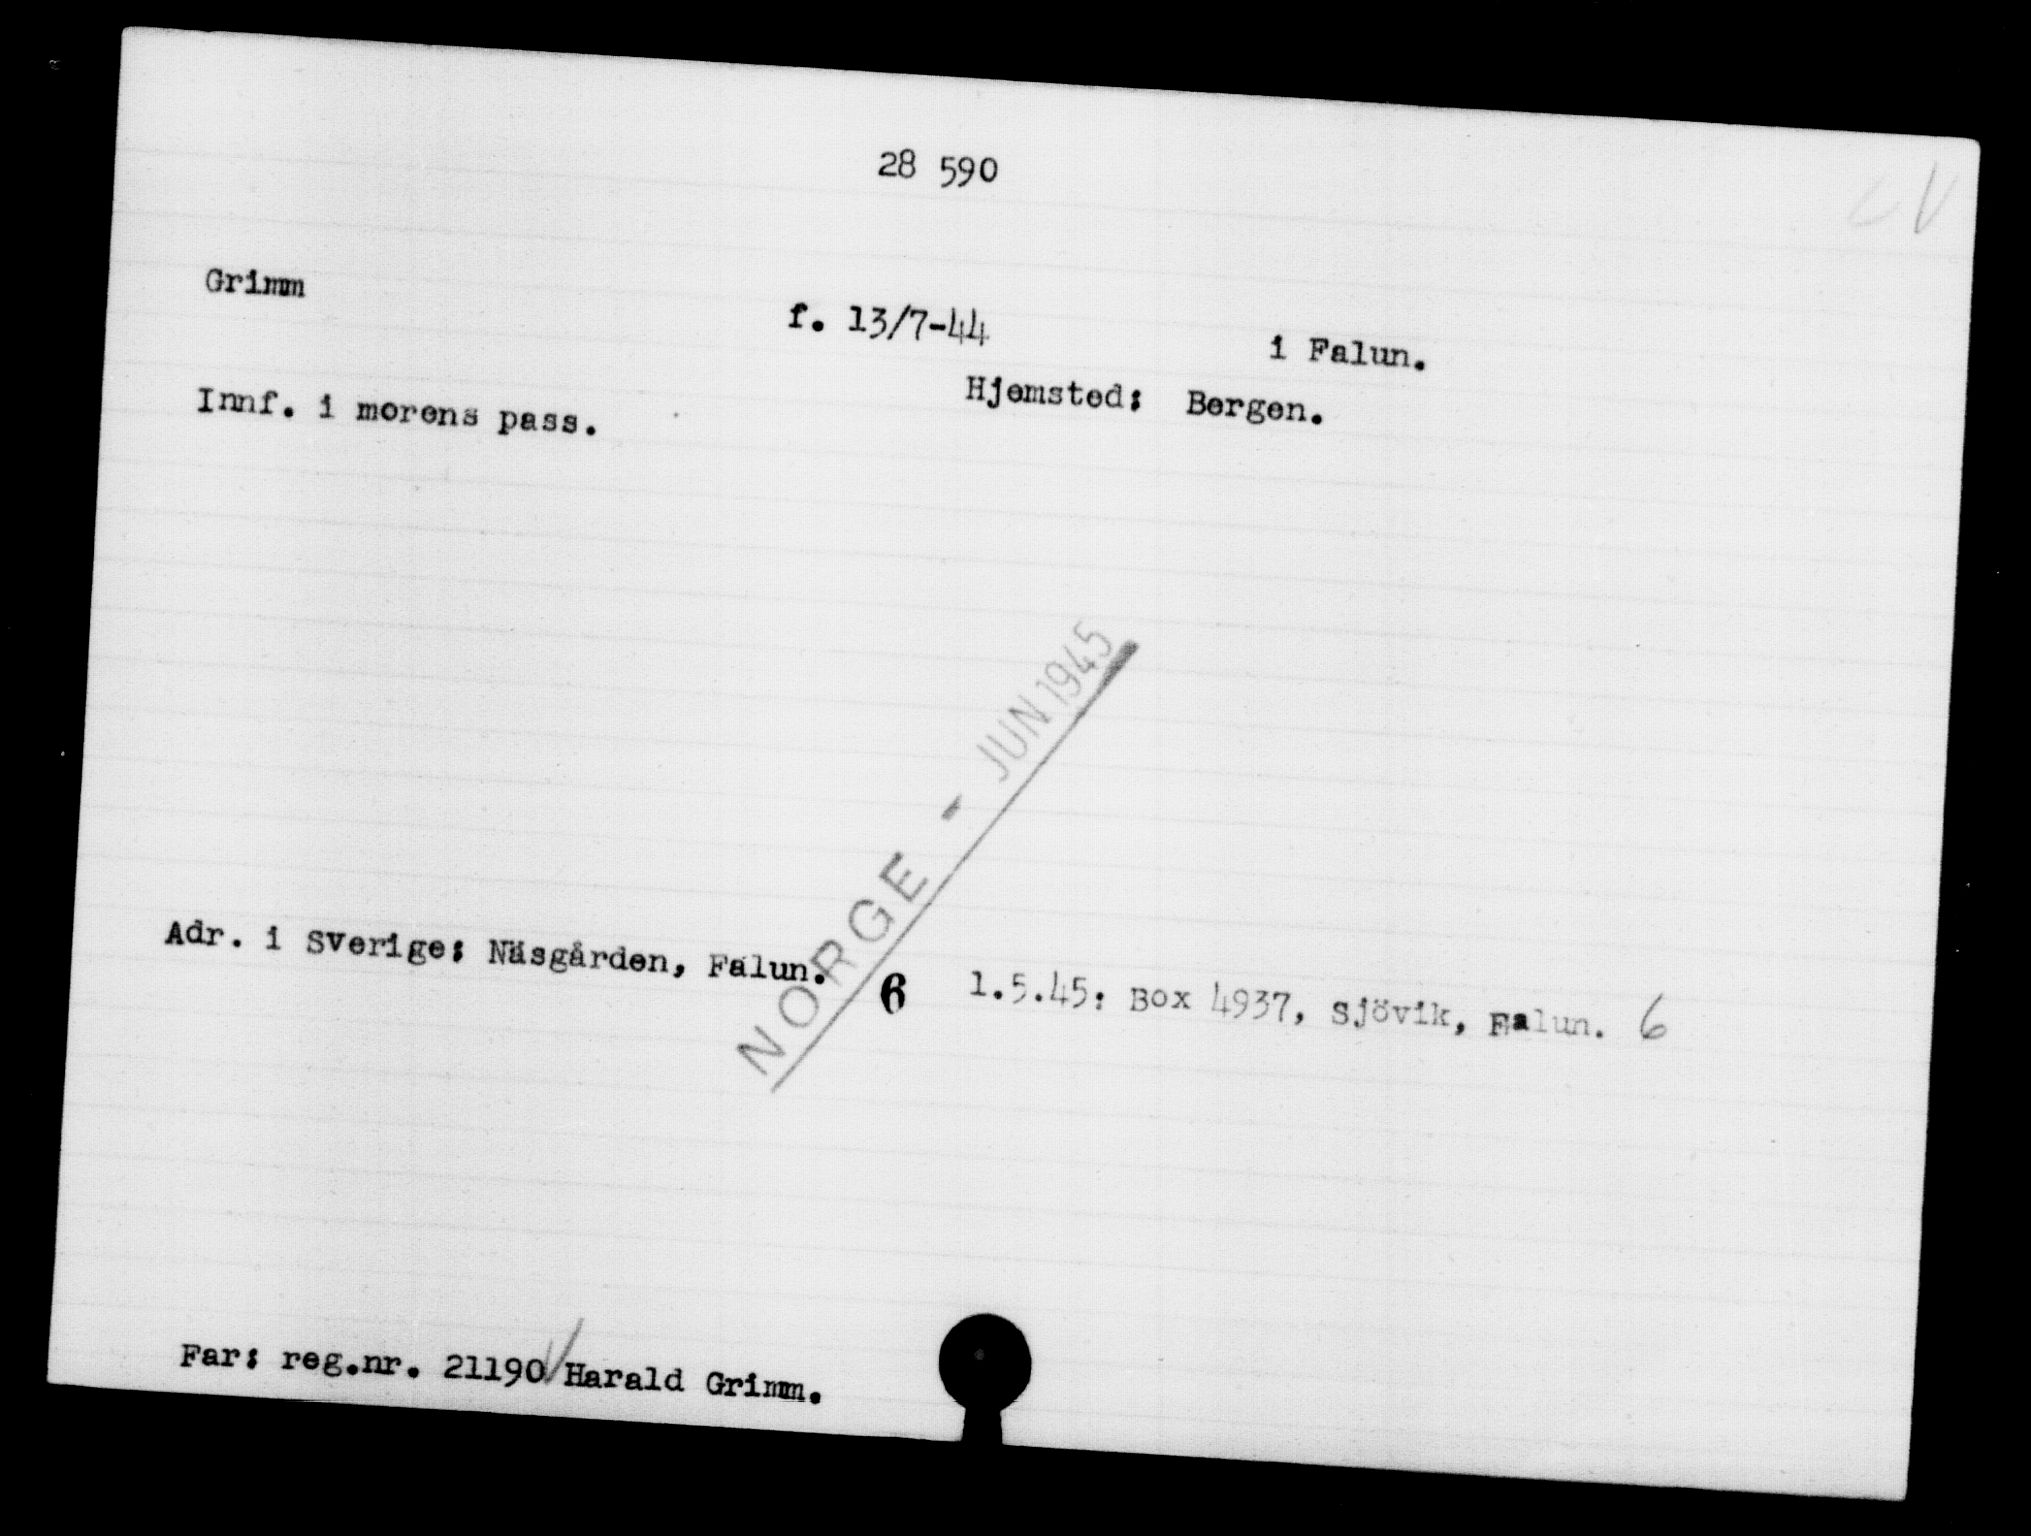 28 590
Grimm
f. 13/7-44
i Falun.
Innf. i morens pass.
Hjemsted: Bergen.
NORGE - JUN 1945
Adr. i Sverige: Näsgården, Falun.
6
1.5.45: Box 4937, Sjövik, Falun. 6
Far: reg.nr. 21190 Harald Grimm.